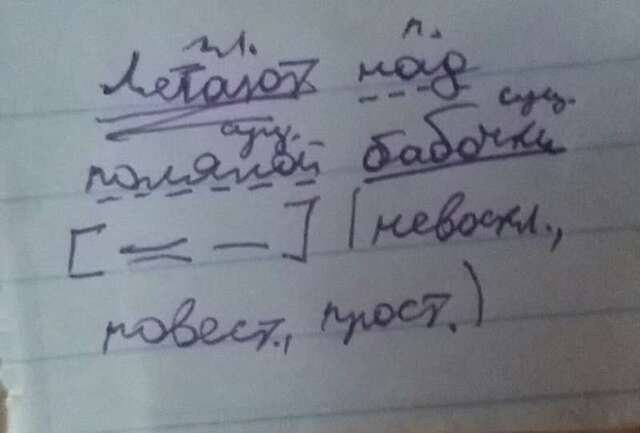 гл. п.
Летают над
сущ. сущ.
поляной бабочки
[= –] (невоскл.,
повест., прост.)